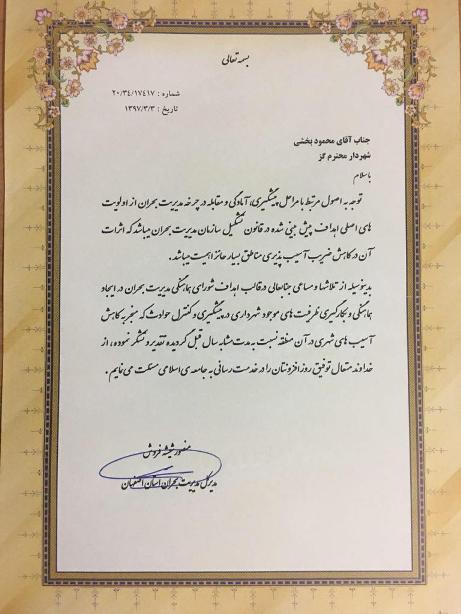 بسمه تعالی
شماره : ۲۰/۳۴/۱۷۴۱۷
تاریخ : ۱۳۹۷/۳/۳
جناب آقای محمود بخشی
شهردار محترم گز
باسلام
توجه به اصول مرتبط با مراحل پیشگیری، آمادگی و مقابله در چرخه مدیریت بحران از اولویت
های اصلی اهداف پیش بینی شده در قانون تشکیل سازمان مدیریت بحران میباشد که اثرات
آن در کاهش ضریب آسیب پذیری مناطق بسیار حائز اهمیت میباشد.
بدینوسیله از تلاشها و مساعی جنابعالی در قالب اهداف شورای هماهنگی مدیریت بحران در ایجاد
هماهنگی و بکارگیری ظرفیت های موجود شهرداری در پیشگیری و کنترل حوادث که منجر به کاهش
آسیب های شهری در آن منطقه نسبت به مدت مشابه سال قبل گردیده تقدیر و تشکر نموده، از
خداوند متعال توفیق روز افزونتان را در خدمت رسانی به جامعه ی اسلامی مسئلت می نمایم .
منصور شیشه فروش
مدیرکل مدیریت بحران استان اصفهان